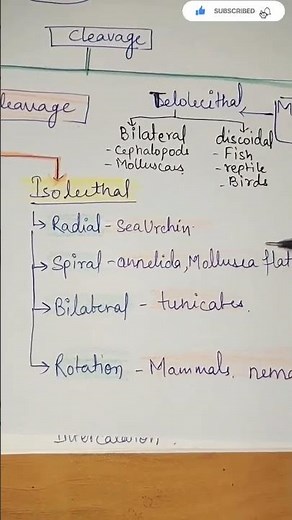 SUBSCRIBED
Cleavage
leavage
Telolecithal
M
Bilateral
- Cephalopods
- Molluscas
discoidal
- Fish
- reptile
- Birds
Isolecithal
Radial - Sea Urchin
Spiral - annelida, Mollusca flat
Bilateral - tunicates.
Rotation - Mammals. nema